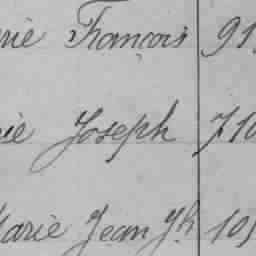 rie François 91
ie Joseph 710
Marie Jean Jh 101